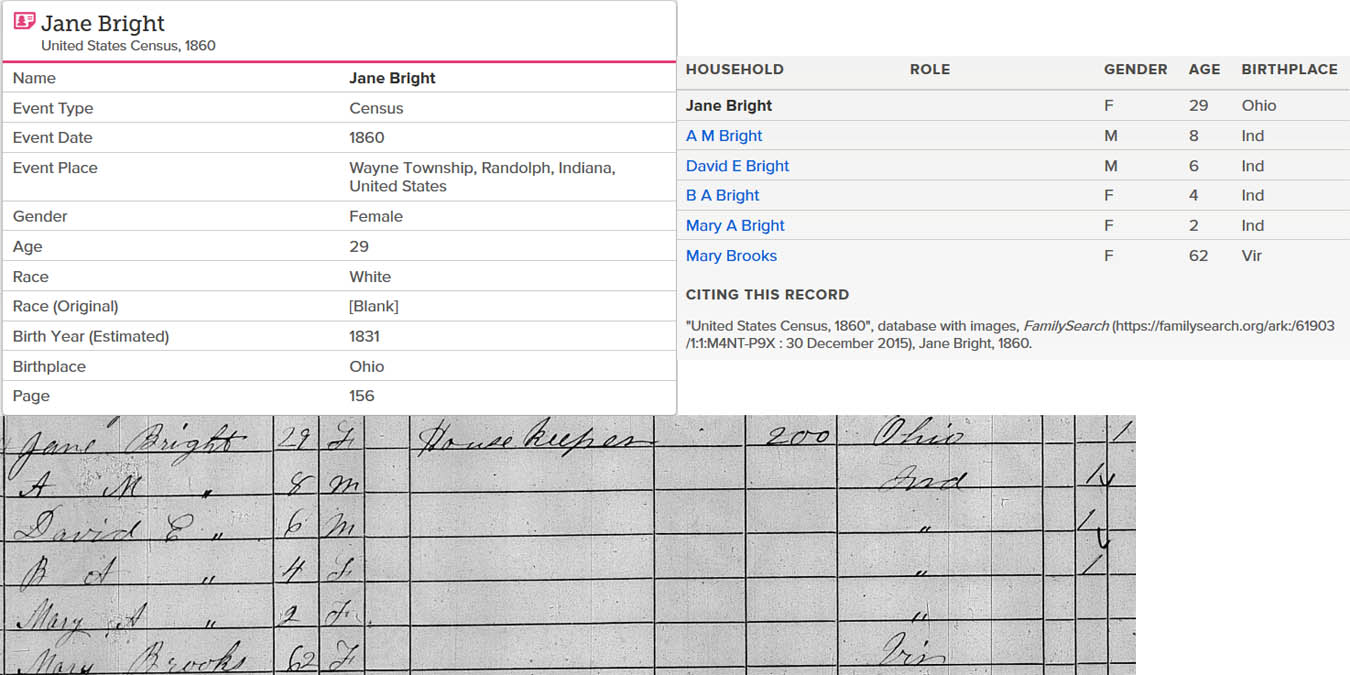 Jane Bright
United States Census, 1860
Name Jane Bright
Event Type Census
Event Date 1860
Event Place Wayne Township, Randolph, Indiana,
United States
Gender Female
Age 29
Race White
Race (Original) [Blank]
Birth Year (Estimated) 1831
Birthplace Ohio
Page 156
HOUSEHOLD ROLE GENDER AGE BIRTHPLACE
Jane Bright F 29 Ohio
A M Bright M 8 Ind
David E Bright M 6 Ind
B A Bright F 4 Ind
Mary A Bright F 2 Ind
Mary Brooks F 62 Vir
CITING THIS RECORD
"United States Census, 1860", database with images, FamilySearch (https://familysearch.org/ark:/61903
/1:1:M4NT-P9X : 30 December 2015), Jane Bright, 1860.
Jane Bright 29 F House keeper 200 Ohio 1
A M " 8 M Ind 1
David E " 6 M " 1
B A " 4 F " 1
Mary A " 2 F "
Mary Brooks 62 F Vir